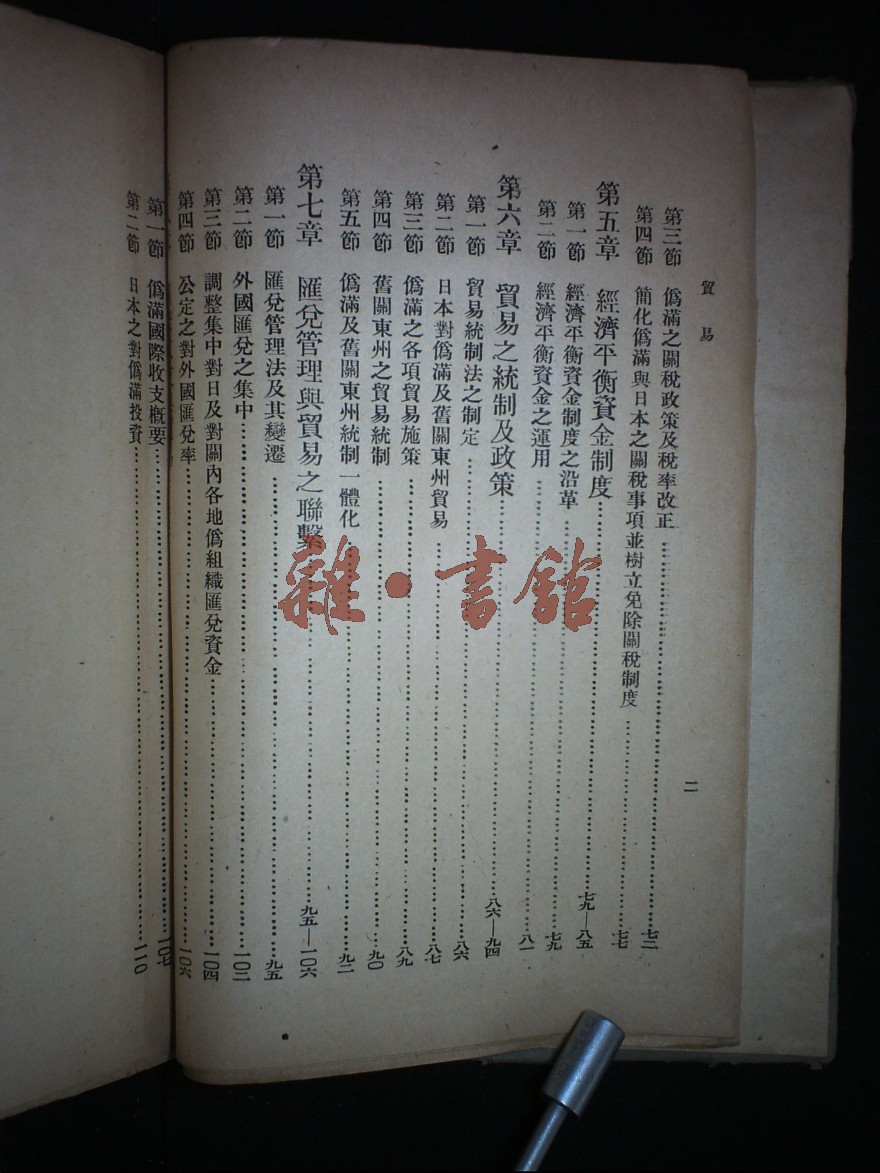 貿易
二
第三節 僞滿之關稅政策及稅率改正……七二
第四節 簡化僞滿與日本之關稅事項並樹立免除關稅制度……七七
第五章 經濟平衡資金制度……七九—八五
第一節 經濟平衡資金制度之沿革……七九
第二節 經濟平衡資金之運用……八一
第六章 貿易之統制及政策……八六—九四
第一節 貿易統制法之制定……八六
第二節 日本對僞滿及舊關東州貿易……八七
第三節 僞滿之各項貿易施策……八九
第四節 舊關東州之貿易統制……九〇
第五節 僞滿及舊關東州統制一體化……九二
第七章 匯兌管理與貿易之聯繫……九五—一〇六
第一節 匯兌管理法及其變遷……九五
第二節 外國匯兌之集中……一〇二
第三節 調整集中對日及對關內各地僞組織匯兌資金……一〇四
第四節 公定之對外國匯兌率……一〇六
第一節 僞滿國際收支概要……一〇七
第二節 日本之對僞滿投資……一一〇
雜·書館